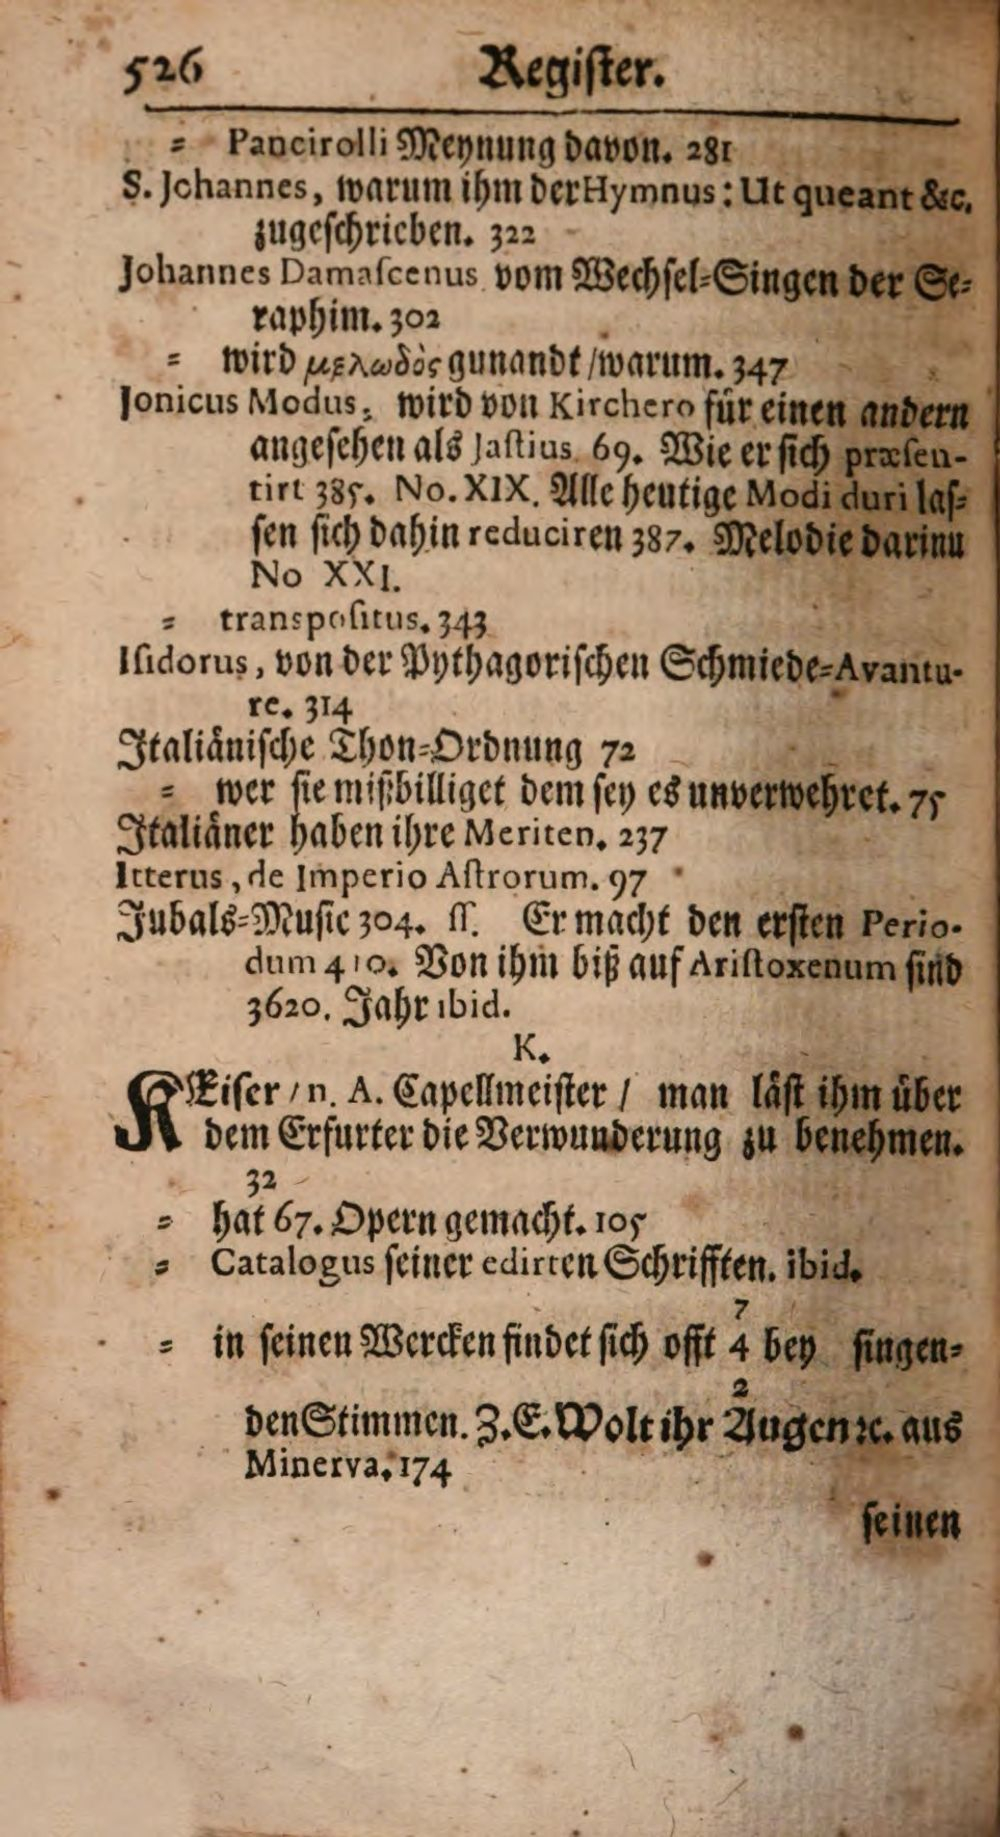 526 Register.
⸗ Pancirolli Meynung davon. 281
S. Johannes, warum ihm der Hymnus: Ut queant &c.
zugeschrieben. 322
Johannes Damaſcenus vom Wechſel⸗Singen der Se⸗
raphim. 302
⸗ wird μελωδὸς gunandt / warum. 347
Jonicus Modus, wird von Kirchero für einen andern
angeſehen als Jaſtius 69. Wie er ſich præſen-
tirt 385. No. XIX. Alle heutige Modi duri laſ⸗
ſen ſich dahin reduciren 387. Melodie darinu
No XXI.
⸗ transpoſitus. 343
Iſidorus, von der Pythagoriſchen Schmiede⸗Avantu-
re. 314
Italiäniſche Thon⸗Ordnung 72
⸗ wer ſie mißbilliget dem ſey es unverwehret. 75
Italiäner haben ihre Meriten. 237
Itterus, de Imperio Aſtrorum. 97
Jubals⸗Muſic 304. ſſ. Er macht den erſten Perio-
dum 410. Von ihm biß auf Ariſtoxenum ſind
3620. Jahr ibid.
K.
KEiſer / n. A. Capellmeiſter / man läſt ihm über
dem Erfurter die Verwunderung zu benehmen.
32
⸗ hat 67. Opern gemacht. 105
⸗ Catalogus ſeiner edirten Schrifften. ibid.
7
⸗ in ſeinen Wercken findet ſich offt 4 bey ſingen⸗
2
den Stimmen. Z. E. Wolt ihr Augen ꝛc. aus
Minerva. 174
ſeinen